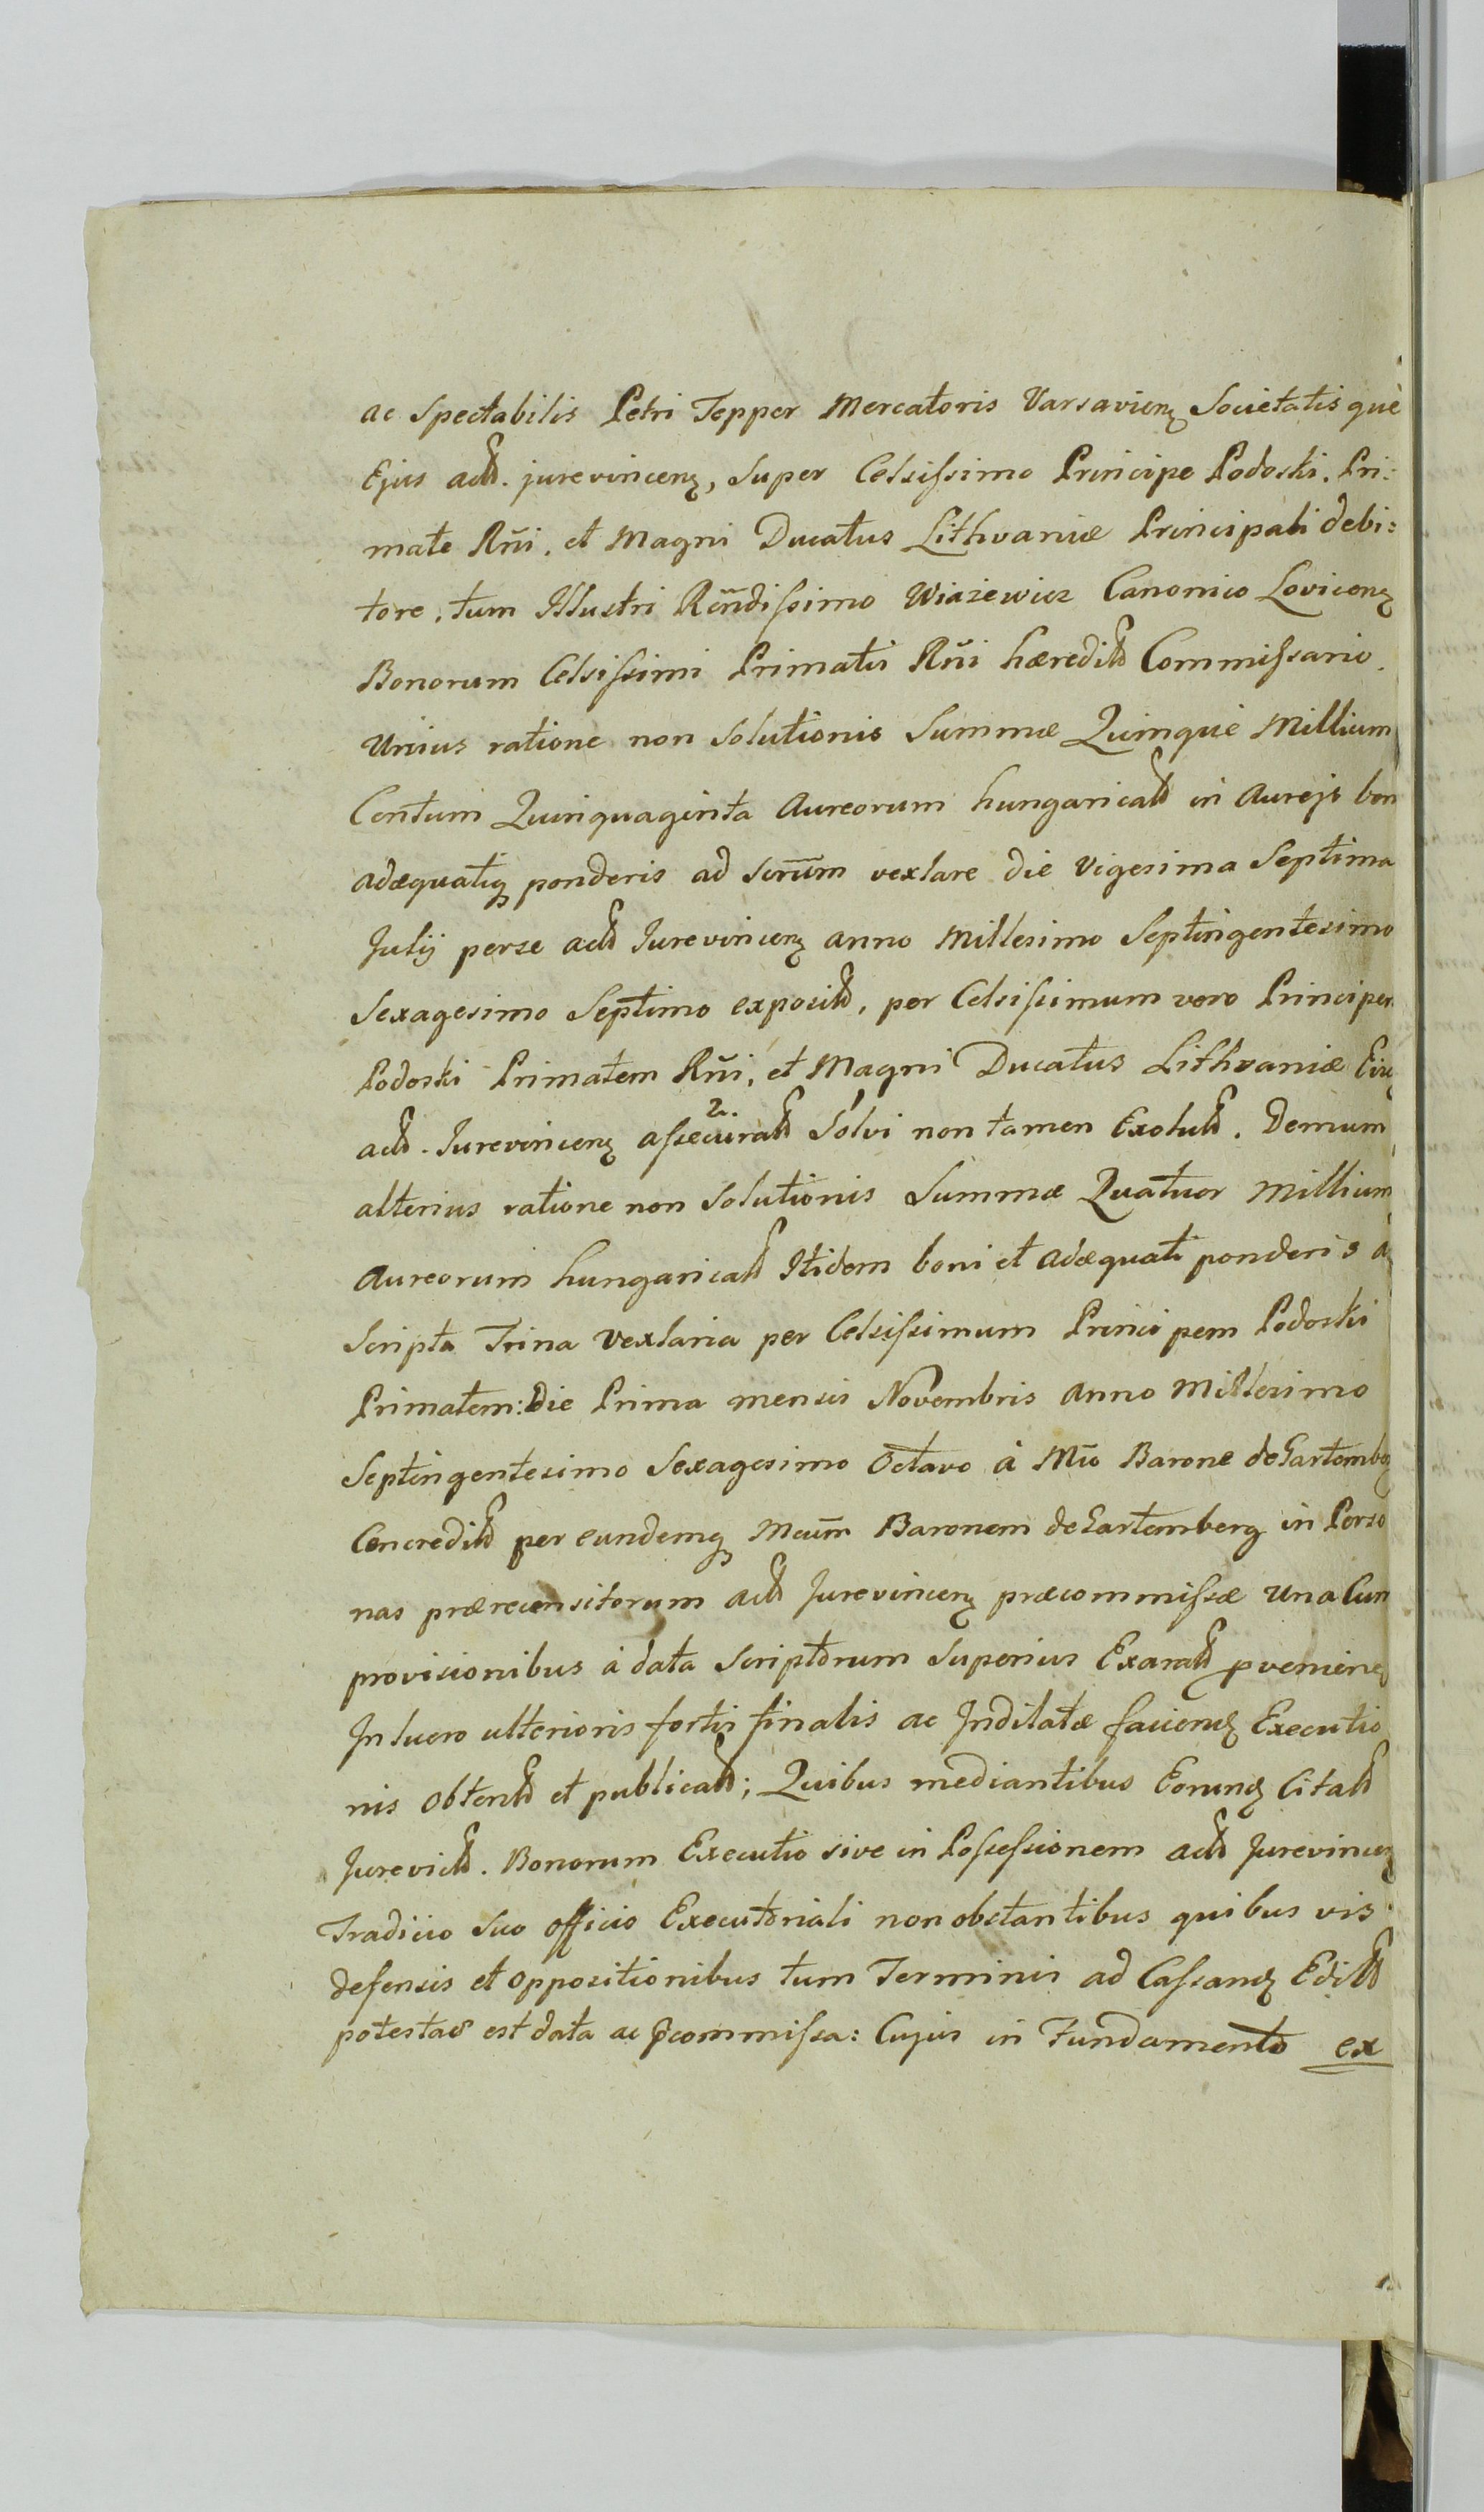 ac Spectabilis Petri Tepper Mercatoris Varsavienꝫ Societatis què
Ejus actꝭ. jurevincenꝫ, Super Celsissimo Principe Podoski. Pri:
mate Rñi. et Magni Ducatus Lithvaniæ Principali debi:
tore. tum Illustri Rñdissimo Wiazewicz Canonico Lovicenꝫ
Bonorum Celsissimi Primatis Rñi hæreditꝭ Commissario.
Unius ratione non Solutionis Summæ Quinquè Millium
Centum Quinquaginta Aureorum hungaricalꝭ in Aurejs bon
adæquatiqꝫ ponderis ad Scrm̃ vexlare die Vigesima Septima
Julij per se actꝭ Jurevincenꝫ anno Millesimo Septingentesimo
Sexagesimo Septimo expositꝭ, per Celsissimum vero Principem
Podoski Primatem Rñi, et Magni Ducatus Lithvaniæ
actꝭ. Jurevincenꝫ assecuratꝭ 2. Solvi non tamen Exolutꝭ. Demum
alterius ratione non Solutionis Summæ Quatuor Millium
Aureorum hungaricalꝭ Itidem boni et adæquati ponderis a
Scripta Trina Vexlaria per Celsissimum Principem Podoski
Primatem: Die Prima mensis Novembris Anno Millesimo
Septingentesimo Sexagesimo Octavo à Mꝏ Barone de Gartemberg
Concreditꝭ per eundemqꝫ Mcum̃ Baronem de Gartemberg in Perso
nas prærecensitorum actꝭ Jurevincenꝫ præcommissæ una Cum
provisionibus à data Scriptorum Superius Exaratꝭ ꝓvenienꝫ
In lucro ulterioris fortis finalis ac Indilatæ faciendꝫ Executio
nis obtentꝭ et publicatꝭ; Quibus mediantibus Eorundꝫ Citatꝭ
Jurevictꝭ. Bonorum Executio sive in Possessionem actꝭ Jurevincenꝫ
Tradicio Suo officio Executoriali non obstantibus quibus vis
defensis et oppositionibus tum Terminis ad Cassandꝫ Edictꝭ
potestas est data ac p̃commissa: Cujus in Fundamento ex